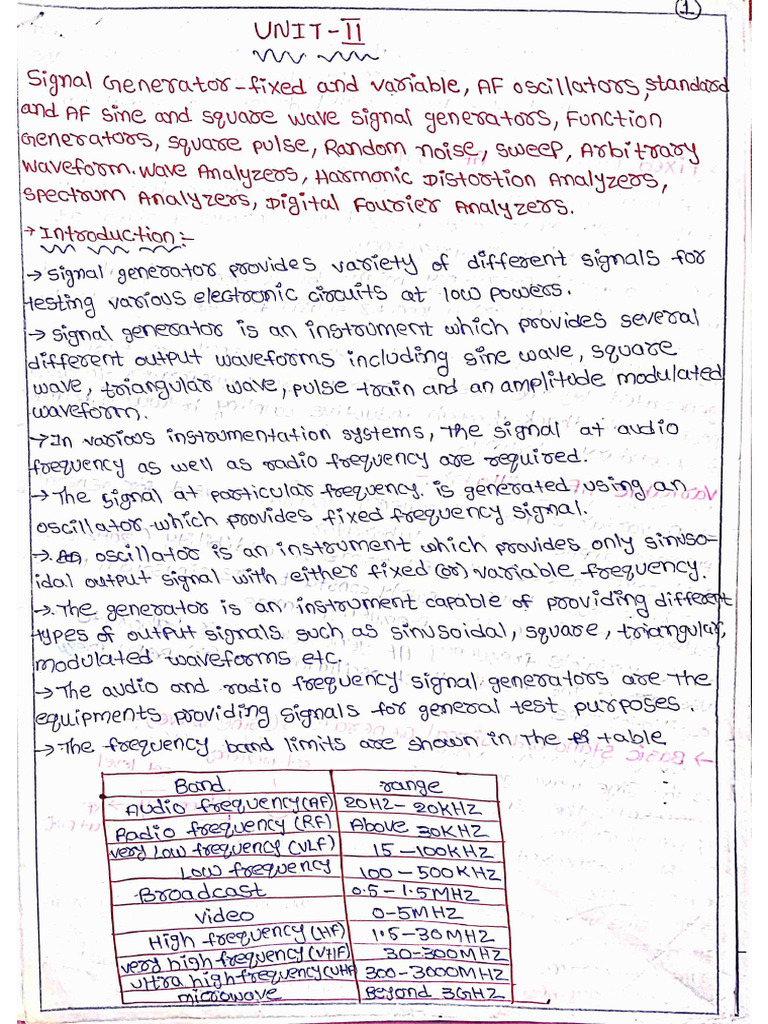 1
UNIT-II
Signal Generator-fixed and variable, AF oscillators, standard
and AF sine and square wave signal generators, Function
Generators, square pulse, Random noise, sweep, Arbitrary
waveform. wave Analyzers, Harmonic Distortion Analyzers,
spectrum Analyzers, Digital Fourier Analyzers.
→ Introduction:-
→ signal generator provides variety of different signals for
testing various electronic circuits at low powers.
→ signal generator is an instrument which provides several
different output waveforms including sine wave, square
wave, triangular wave, pulse train and an amplitude modulated
waveform.
→ In various instrumentation systems, the signal at audio
frequency as well as radio frequency are required.
→ The signal at particular frequency. is generated using an
oscillator which provides fixed frequency signal.
→ oscillator is an instrument which provides only sinuso-
idal output signal with either fixed (or) variable frequency.
→ The generator is an instrument capable of providing different
types of output signals such as sinusoidal, square, triangular,
modulated waveforms etc.
→ The audio and radio frequency signal generators are the
equipments providing signals for general test purposes.
→ The frequency band limits are shown in the table
Band. range
Audio frequency(AF) 20HZ-20KHZ
Radio frequency (RF) Above 30KHZ
very Low frequency (VLF) 15-100KHZ
Low frequency 100-500KHZ
Broadcast 0.5-1.5MHZ
video 0-5MHZ
High frequency (HF) 1.5-30MHZ
very high frequency(VHF) 30-300MHZ
ultra high frequency(UHF) 300-3000MHZ
microwave Beyond 3GHZ